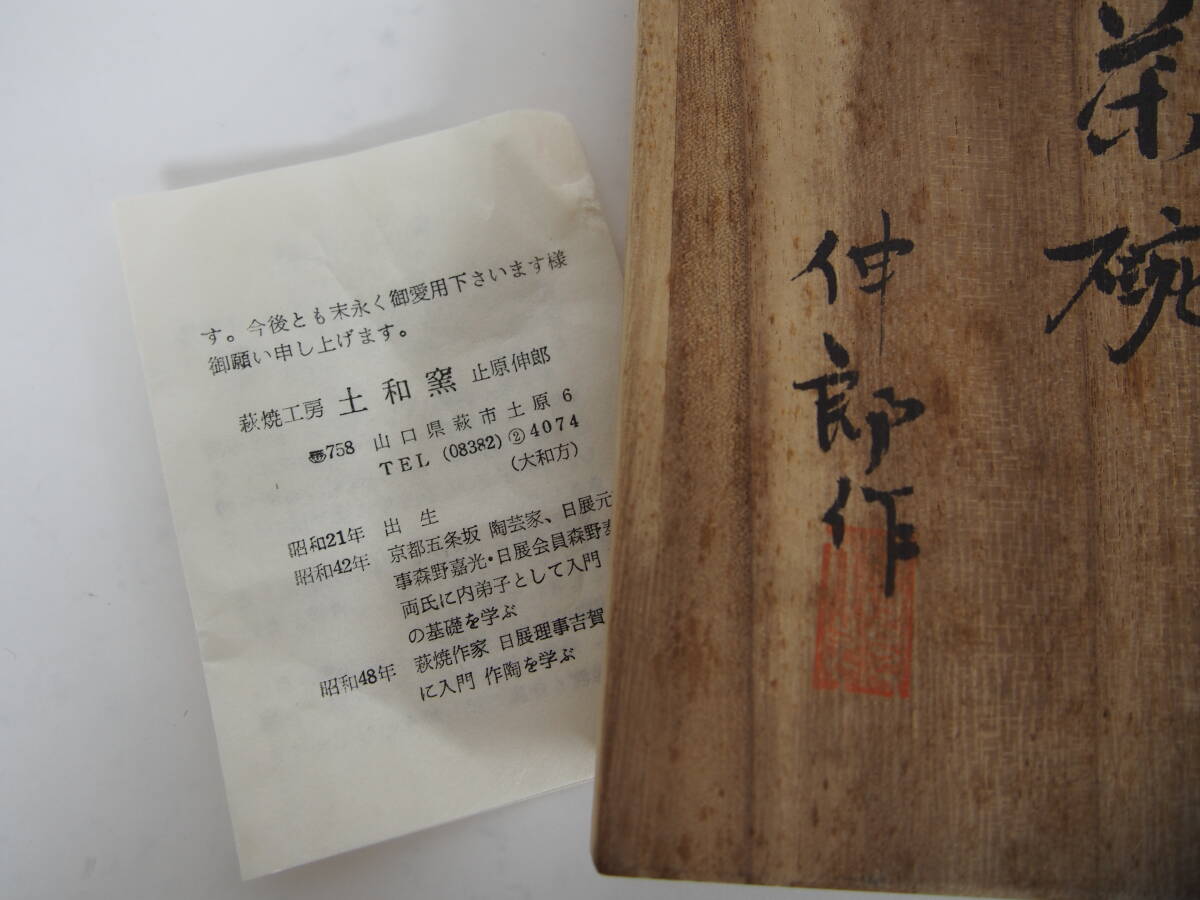 す。今後とも末永く御愛用下さいます様
御願い申し上げます。
萩焼工房 土和窯 止原伸郎
〠758 山口県萩市土原6
TEL (08382) ②4074
(大和方)
昭和21年 出生
昭和42年 京都五条坂 陶芸家、日展元
事森野嘉光・日展会員森野泰
両氏に内弟子として入門
の基礎を学ぶ
昭和48年 萩焼作家 日展理事吉賀
に入門 作陶を学ぶ
茶碗
伸郎作